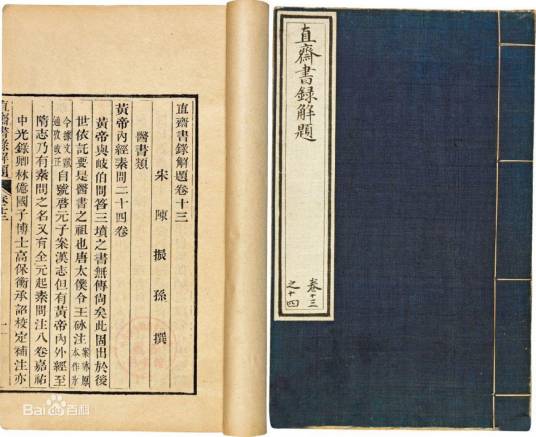 直齋書錄解題卷十三
宋 陳振孫 撰
醫書類
黃帝內經素問二十四卷
黃帝與岐伯問答三墳之書無傳尚矣此固出於後
世依託要是醫書之祖也唐太僕令王砅注案砅原本作冰
今據文獻通攷改正自號啓元子案漢志但有黃帝內外經至
隋志乃有素問之名又有全元起素問注八卷嘉祐
中光錄卿林億國子博士高保衡承詔校定補注亦
直齋書錄解題
卷十三
一
直齋書錄解題
卷十三
之十四
Bai百科